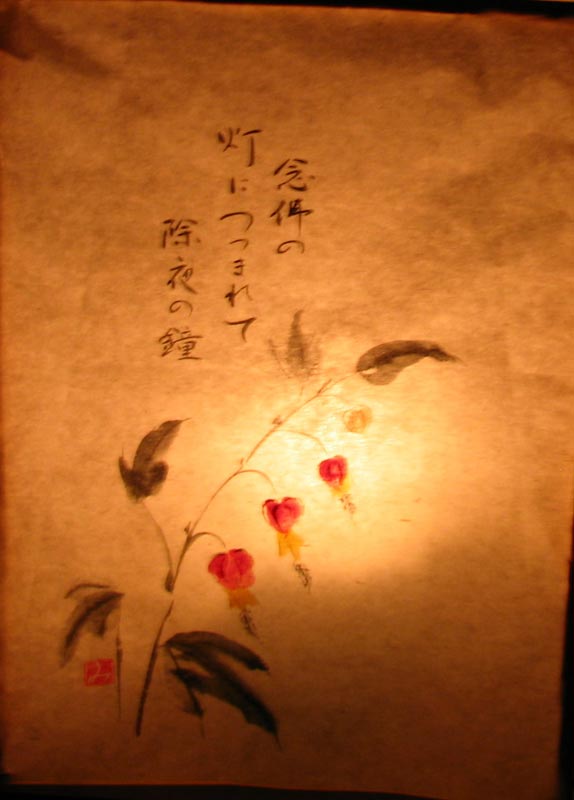 念佛の
灯につつまれて
除夜の鐘